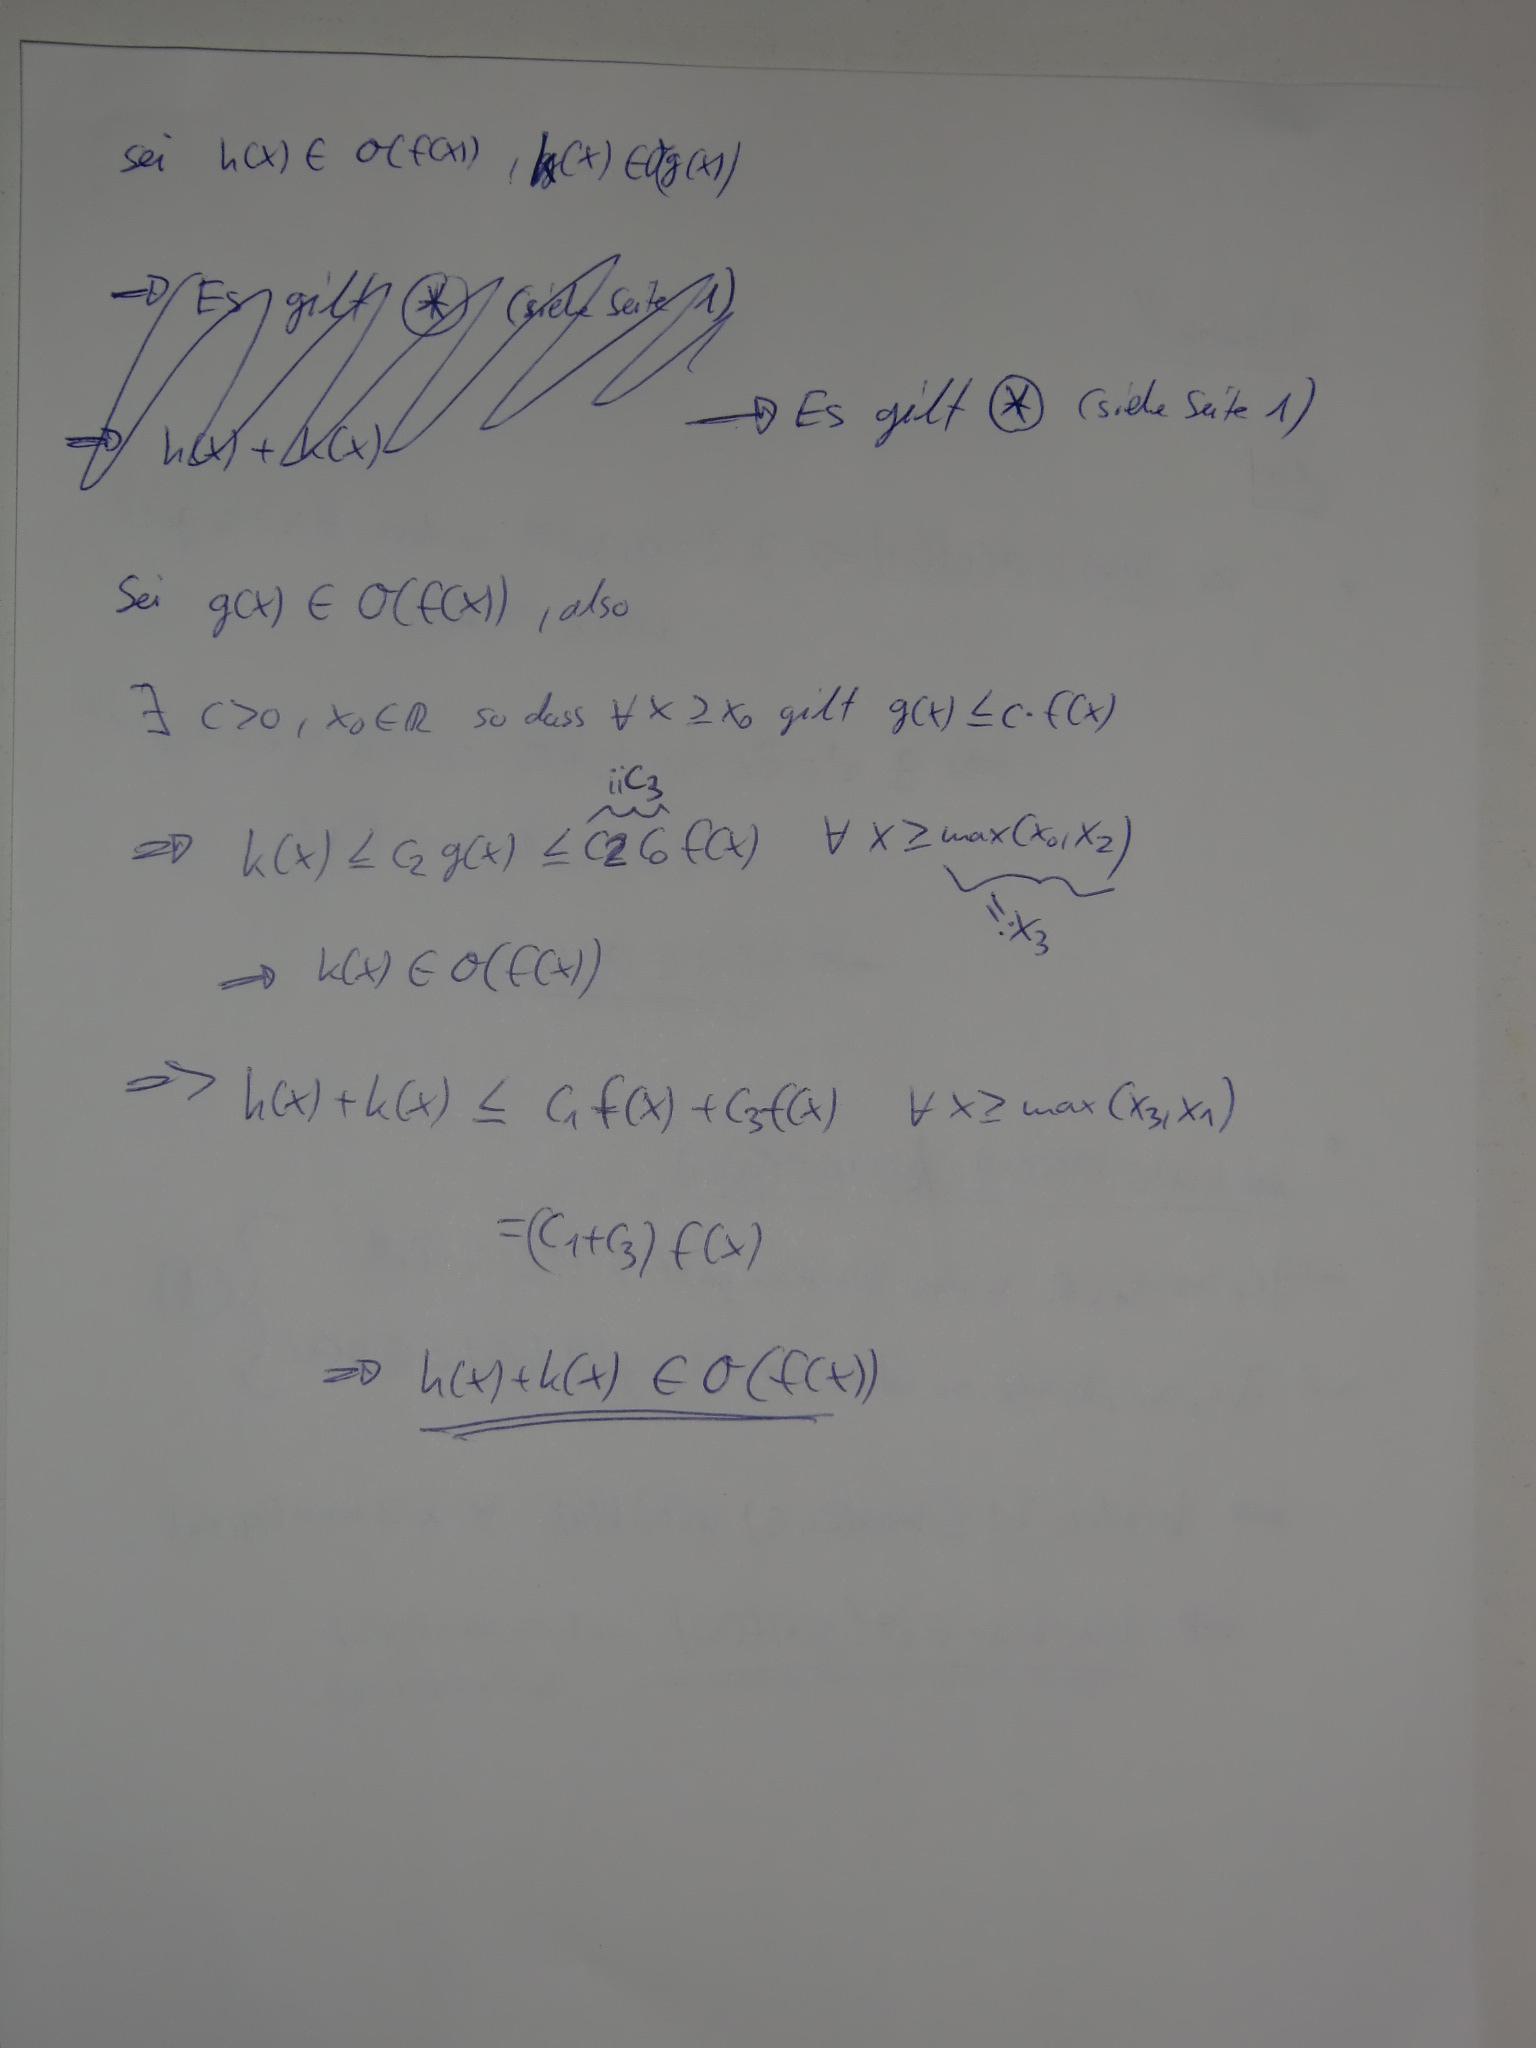 sei h(x) ∈ O(f(x)), k(x) ∈ O(g(x))
⇒ Es gilt ⊛ (siehe Seite 1)
⇒ h(x) + k(x)
⇒ Es gilt ⊛ (siehe Seite 1)
Sei g(x) ∈ O(f(x)), also
∃ C>0, x₀∈ℝ so dass ∀ x ≥ x₀ gilt g(x) ≤ C· f(x)
¨C₃
⇒ k(x) ≤ C₂ g(x) ≤ C₂ C₀ f(x) ∀ x ≥ max(x₀, x₂)
=: x₃
⇒ k(x) ∈ O(f(x))
⇒ h(x) + k(x) ≤ C₁ f(x) + C₃ f(x) ∀ x ≥ max(x₃, x₁)
= (C₁+C₃) f(x)
⇒ h(x)+k(x) ∈ O(f(x))